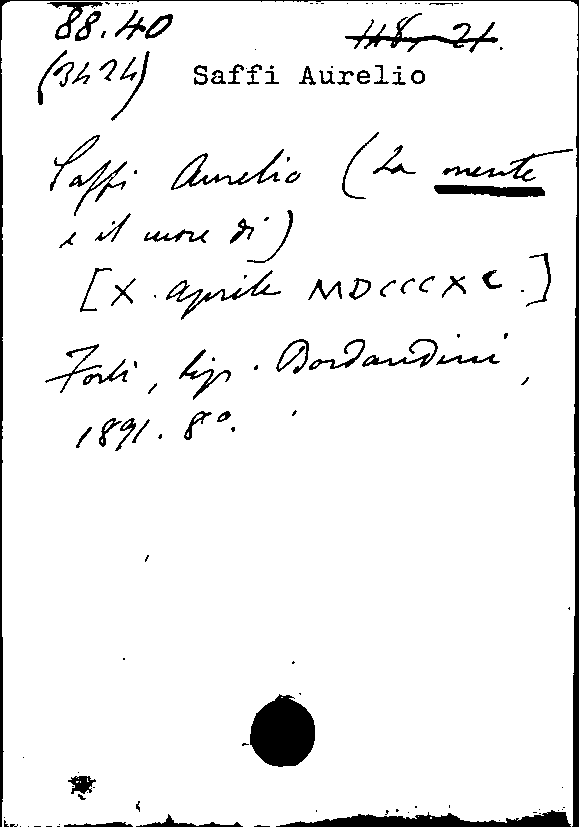 88.40
148, 21.
(3424)
Saffi Aurelio
Saffi Aurelio (La mente
e il cuore di)
[X. Aprile MDCCCXC.]
Forlì, tip. Bordandini,
1891. 8º.